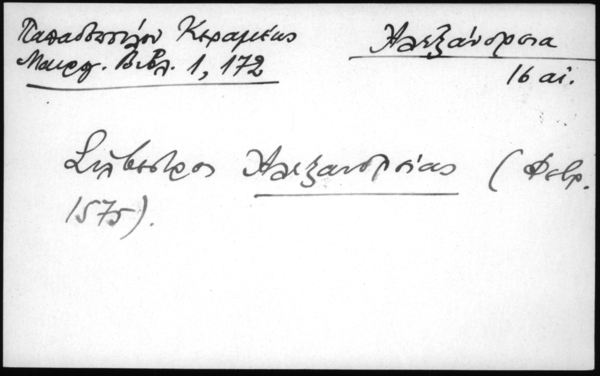 Παπαδοπούλου Κεραμέως
Μαυρογ. Βιβλ. 1, 172
Ἀλεξάνδρεια
16 αἰ.
Σίλβεστρος Ἀλεξανδρείας (Φεβρ.
1575).